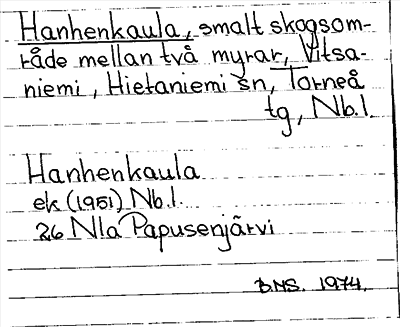 Hanhenkaula, smalt skogsom-
råde mellan två myrar, Vitsa-
niemi, Hietaniemi sn, Torneå
tg, Nb.l.
Hanhenkaula
ek (1951) Nb.l.
26 Nla Papusenjärvi
B.NS. 1974.